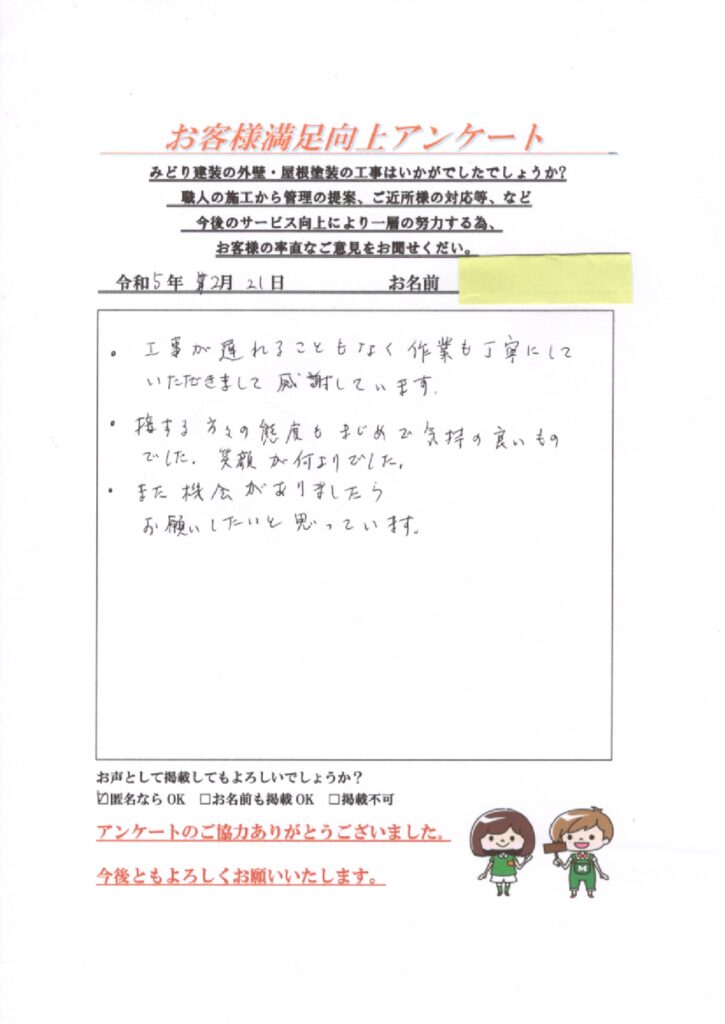 お客様満足向上アンケート
みどり建装の外壁・屋根塗装の工事はいかがでしたでしょうか?
職人の施工から管理の提案、ご近所様の対応等、など
今後のサービス向上により一層の努力する為、
お客様の率直なご意見をお聞せくだい。
令和5年 2月 21日 お名前
・工事が遅れることもなく作業も丁寧にして
いただきまして感謝しています。
・接する方々の態度もまじめで気持の良いもの
でした。笑顔が何よりでした。
・また機会がありましたら
お願いしたいと思っています。
お声として掲載してもよろしいでしょうか?
☑匿名なら OK □お名前も掲載 OK □掲載不可
アンケートのご協力ありがとうございました。
今後ともよろしくお願いいたします。
M